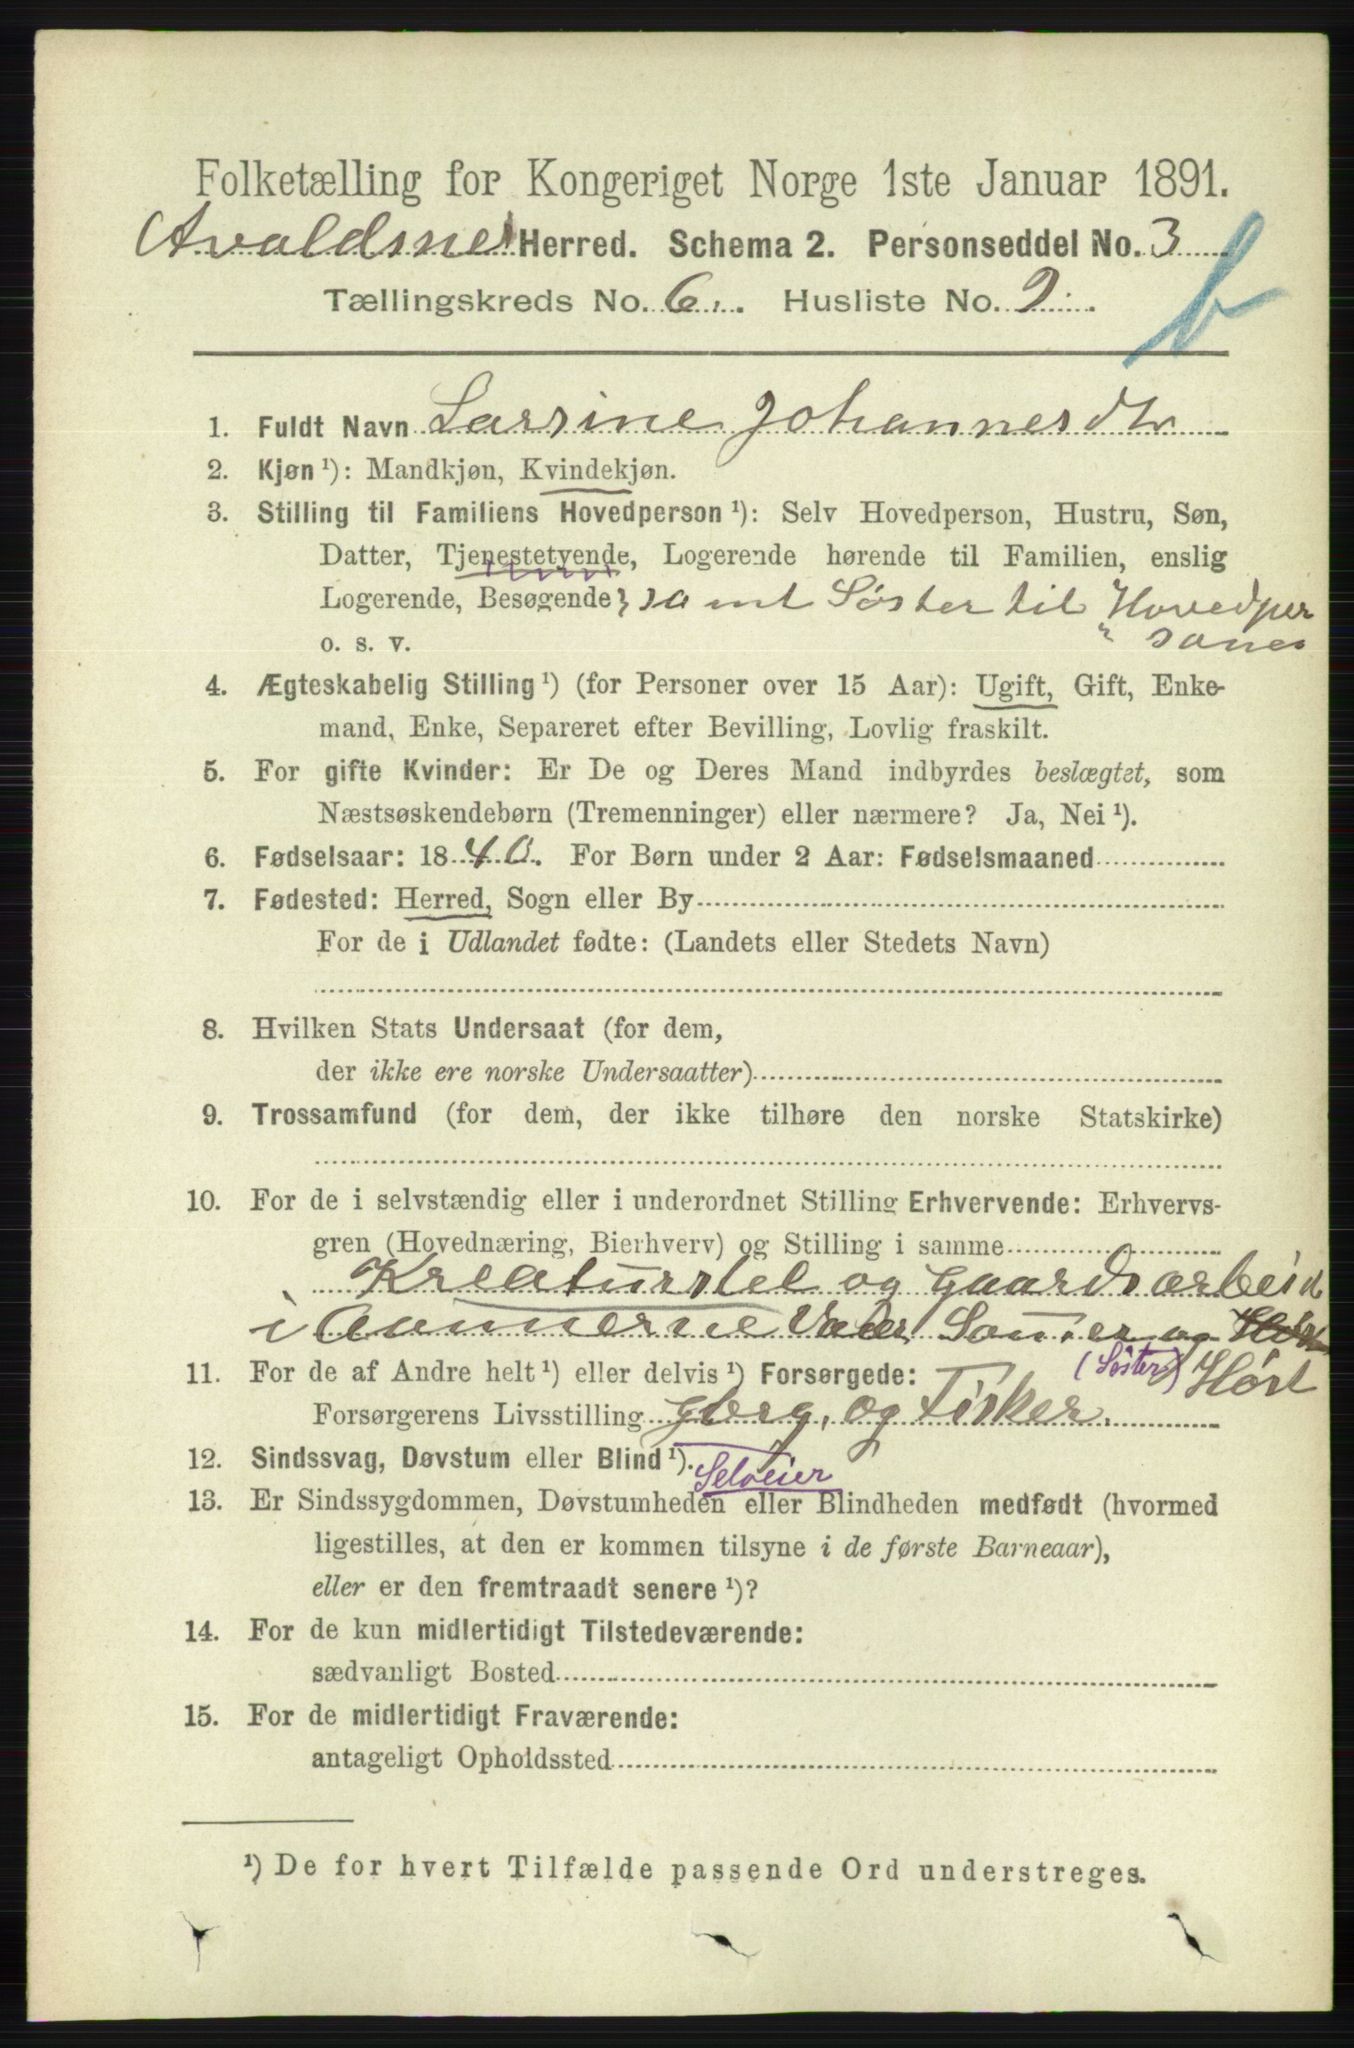 Folketælling for Kongeriget Norge 1ste Januar 1891.
Avaldsnes Herred. Schema 2. Personseddel No. 3
Tællingskreds No. 6. Husliste No. 9.
b
1. Fuldt Navn Larsine Johannesdtr
2. Kjøn ¹): Mandkjøn, Kvindekjøn.
3. Stilling til Familiens Hovedperson ¹): Selv Hovedperson, Hustru, Søn,
Datter, Tjenestetyende, Logerende hørende til Familien, enslig
Logerende, Besøgende samt Søster til Hovedper
o. s. v. "sonen
4. Ægteskabelig Stilling ¹) (for Personer over 15 Aar): Ugift, Gift, Enke-
mand, Enke, Separeret efter Bevilling, Lovlig fraskilt.
5. For gifte Kvinder: Er De og Deres Mand indbyrdes beslægtet, som
Næstsøskendebørn (Tremenninger) eller nærmere? Ja, Nei ¹).
6. Fødselsaar: 1840. For Børn under 2 Aar: Fødselsmaaned
7. Fødested: Herred, Sogn eller By
For de i Udlandet fødte: (Landets eller Stedets Navn)
8. Hvilken Stats Undersaat (for dem,
der ikke ere norske Undersaatter)
9. Trossamfund (for dem, der ikke tilhøre den norske Statskirke)
10. For de i selvstændig eller i underordnet Stilling Erhvervende: Erhvervs-
gren (Hovednæring, Bierhverv) og Stilling i samme
Kreaturstel og Gaardsarbeide
i Aannerne og
11. For de af Andre helt ¹) eller delvis ¹) Forsørgede: (Søster) Høst
Forsørgerens Livsstilling og Fisker.
12. Sindssvag, Døvstum eller Blind ¹). Selveier
13. Er Sindssygdommen, Døvstumheden eller Blindheden medfødt (hvormed
ligestilles, at den er kommen tilsyne i de første Barneaar),
eller er den fremtraadt senere ¹)?
14. For de kun midlertidigt Tilstedeværende:
sædvanligt Bosted
15. For de midlertidigt Fraværende:
antageligt Opholdssted
¹) De for hvert Tilfælde passende Ord understreges.